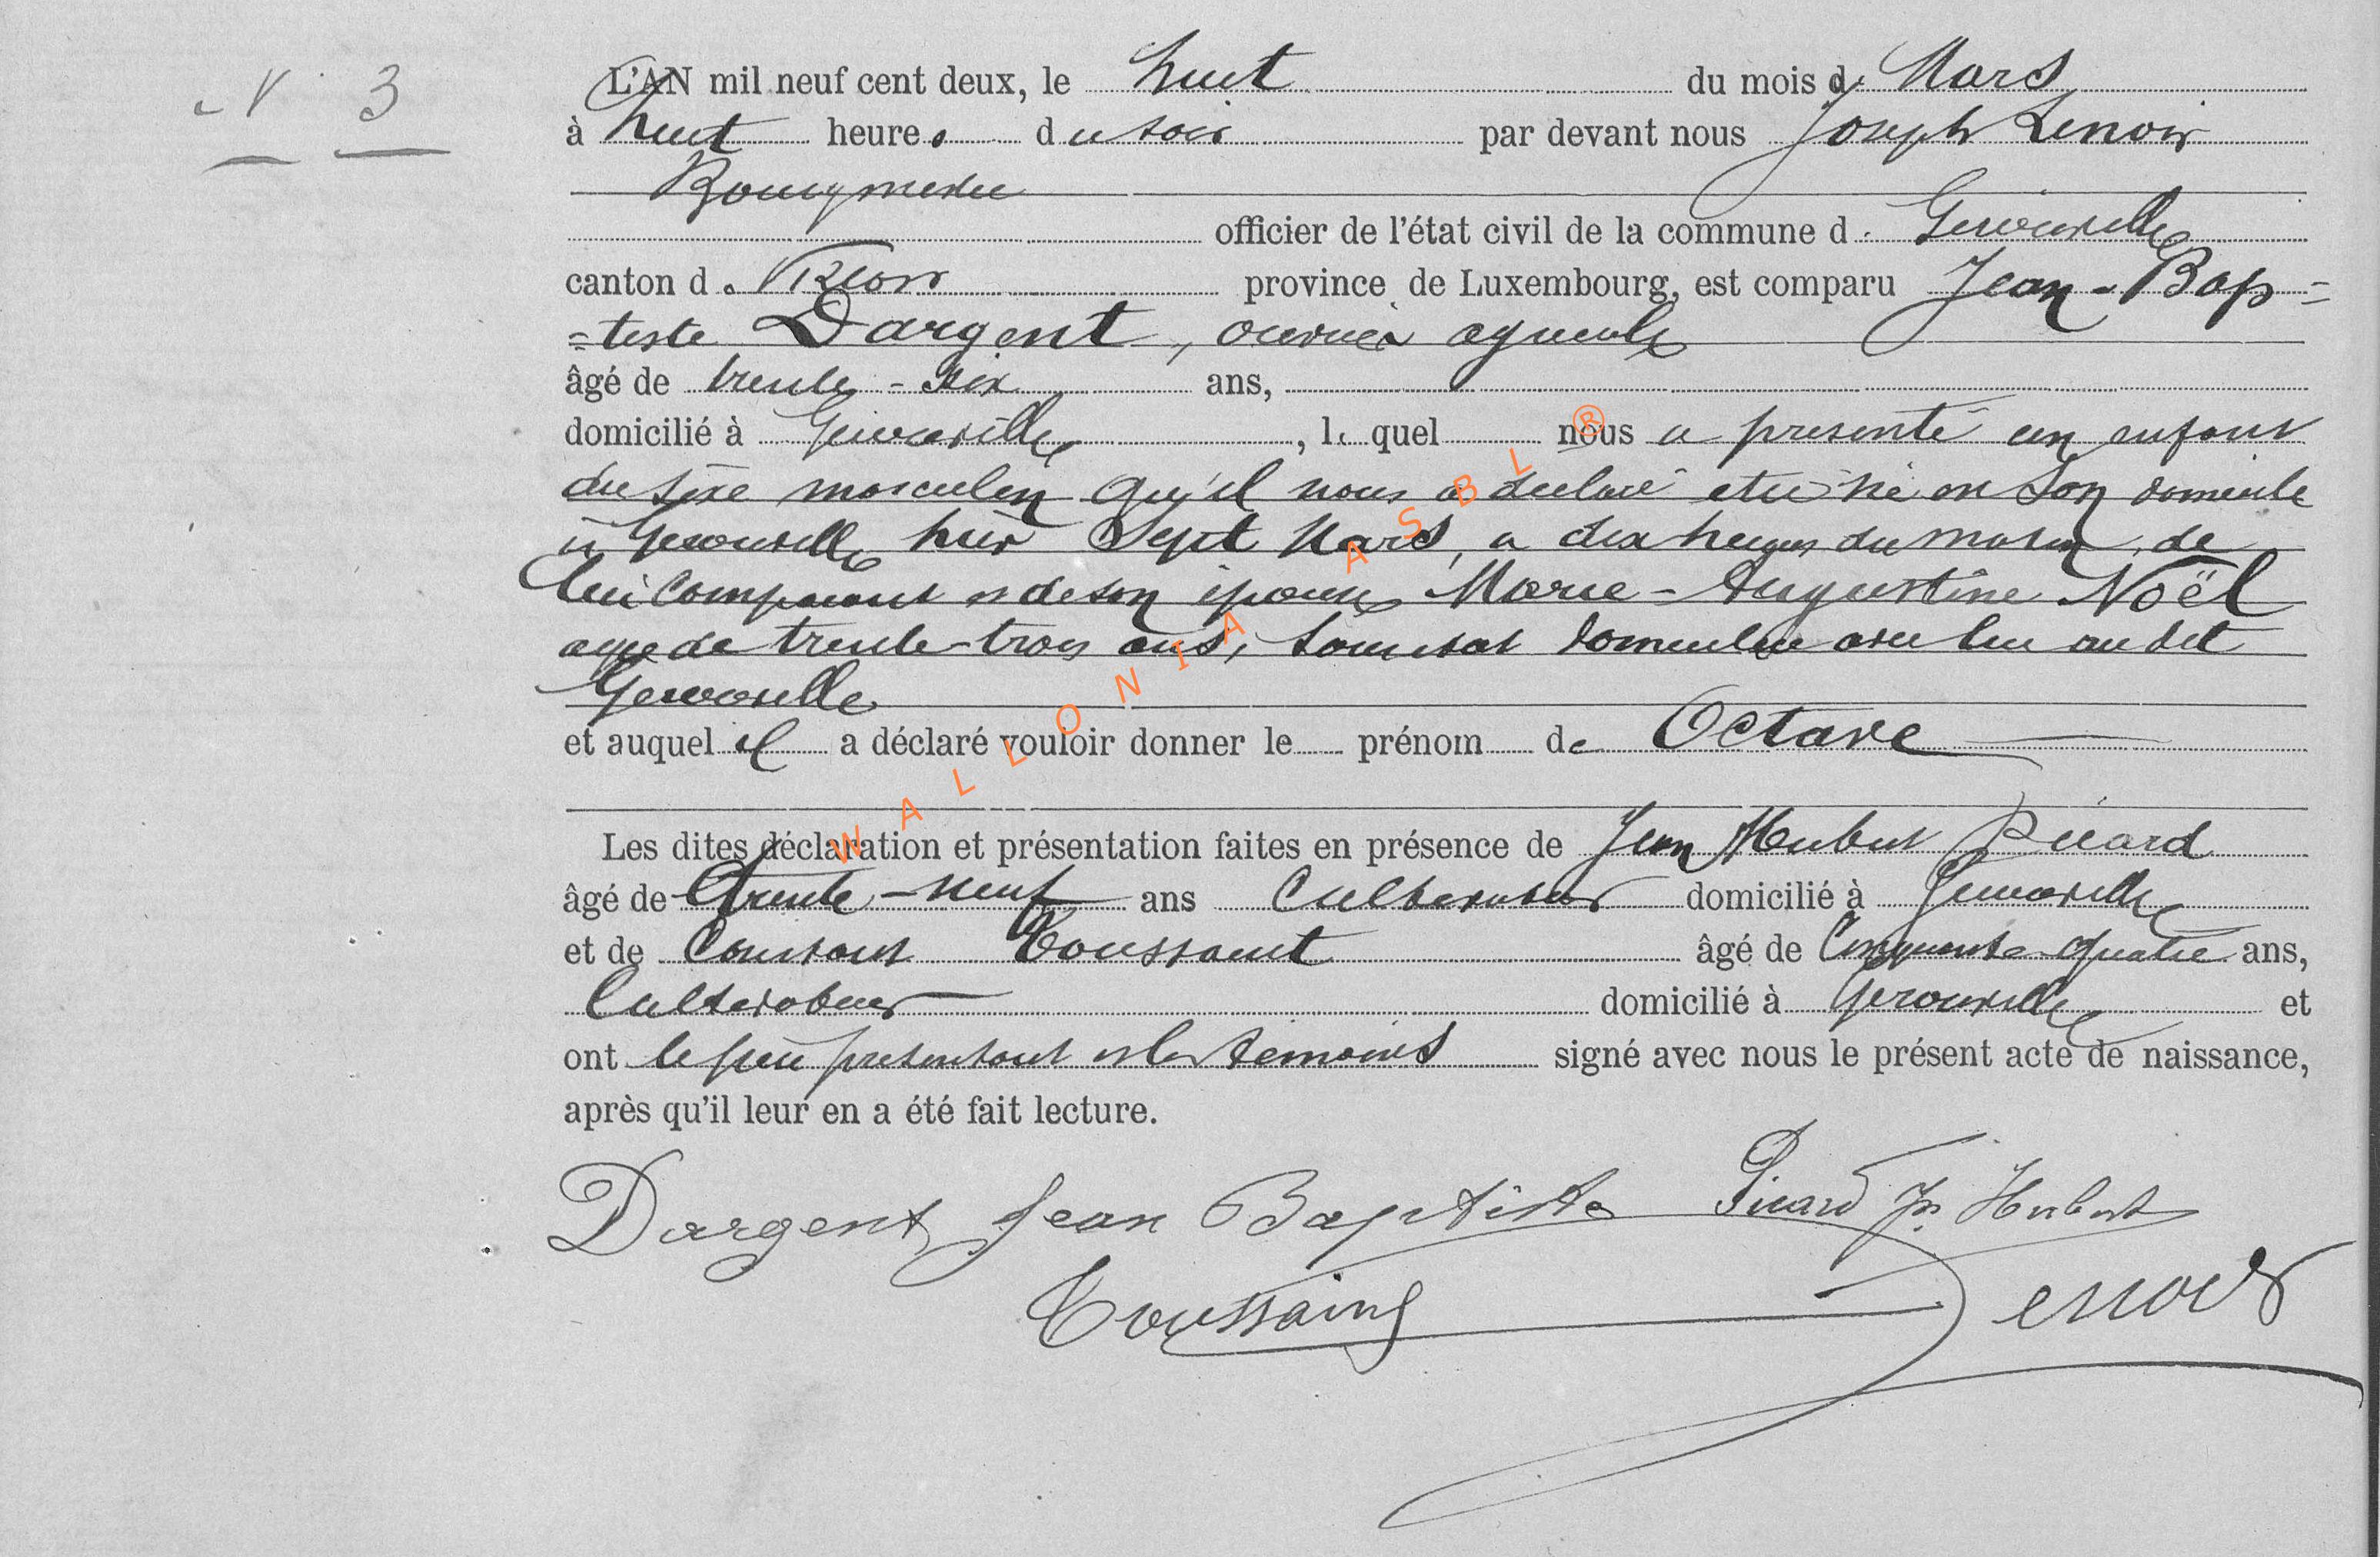 N° 3
L'AN mil neuf cent deux, le huit du mois de Mars
à huit heures du soir par devant nous Joseph Lenoir
Bourgmestre
officier de l'état civil de la commune de Gérouville
canton de Virton province de Luxembourg, est comparu Jean-Bap-
-tiste Dargent, ouvrier agricole
âgé de trente-six ans,
domicilié à Gérouville, lequel nous a présenté un enfant
du sexe masculin qu'il nous a déclaré être né en son domicile
à Gérouville hier Sept Mars, à dix heures du matin, de
lui comparant et de son épouse Marie-Augustine Noël
agée de trente-trois ans, domiciliée avec lui au dit
Gérouville
et auquel il a déclaré vouloir donner le prénom de Octave
Les dites déclaration et présentation faites en présence de Jean Hubert Picard
âgé de trente-neuf ans Cultivateur domicilié à Gérouville
et de Constant Toussaint âgé de Cinquante-quatre ans,
Cultivateur domicilié à Gérouville et
ont le père présentant et les témoins signé avec nous le présent acte de naissance,
après qu'il leur en a été fait lecture.
Dargent Jean Baptiste Picard Jn Hubert
Toussaint Lenoir
WALLONIA ASBL ®